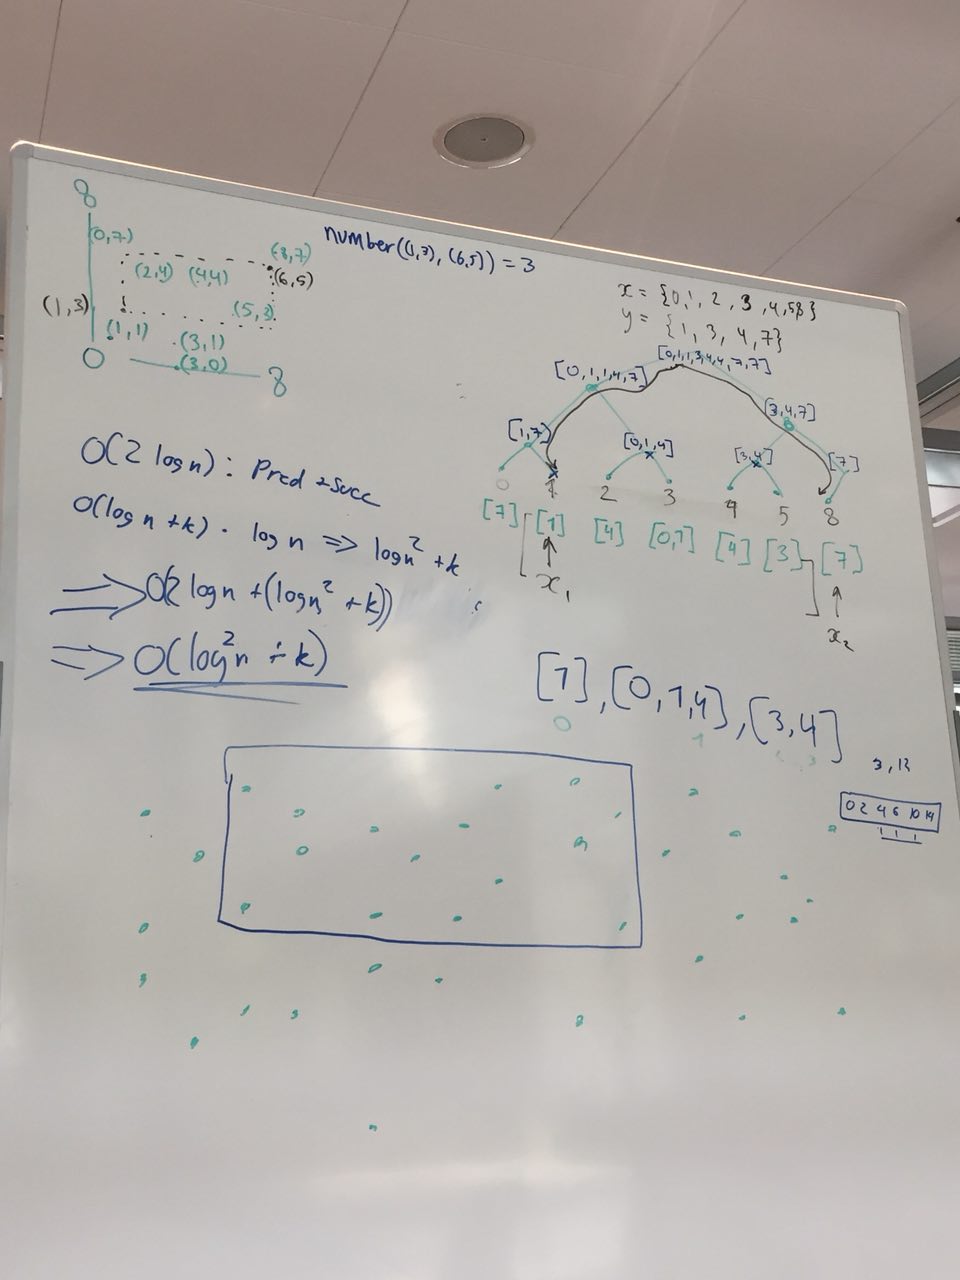 8
(0,7)
(8,7)
(2,4) (4,4)
(6,5)
(1,3)
(5,3)
(1,1)
(3,1)
(3,0)
0
8
number((1,3), (6,5)) = 3
x = {0,1, 2, 3, 4,58}
y = {1, 3, 4, 7}
[0,1,1,3,4,4,7,7]
[0,1,1,4,7]
[3,4,7]
8
[1,7]
[0,1,4]
[3,4]
[7]
0 1 2 3 4 5 8
[7] [1] [4] [0,1] [4] [3] [7]
x₁
x₂
O(2 log n): Pred + Succ
O(log n + k) · log n => log n² + k
=> O(2 log n + (log n² + k))
=> O(log² n + k)
[1], [0, 1, 4], [3, 4]
0 1
0 2 4 6 10 14